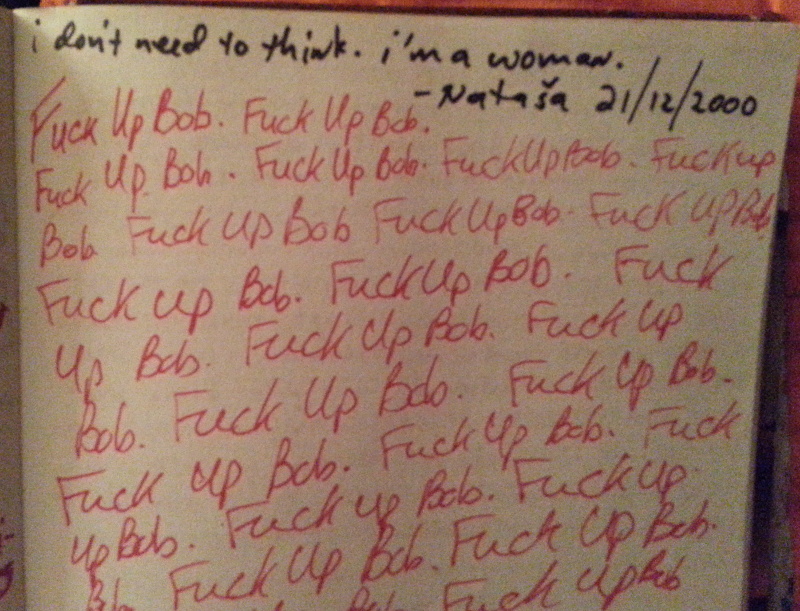 i don't need to think. i'm a woman.
- Nataša 21/12/2000
Fuck Up Bob. Fuck Up Bob.
Fuck Up Bob. Fuck Up Bob. Fuck Up Bob. Fuck up
Bob Fuck Up Bob Fuck Up Bob. Fuck Up Bob
Fuck up Bob. Fuck Up Bob. Fuck
Up Bob. Fuck Up Bob. Fuck Up
Bob. Fuck Up Bob. Fuck Up Bob.
Fuck Up Bob. Fuck Up Bob. Fuck
Up Bob. Fuck up Bob. Fuck Up
Bob. Fuck Up Bob. Fuck Up Bob.
Bob. Fuck Up Bob